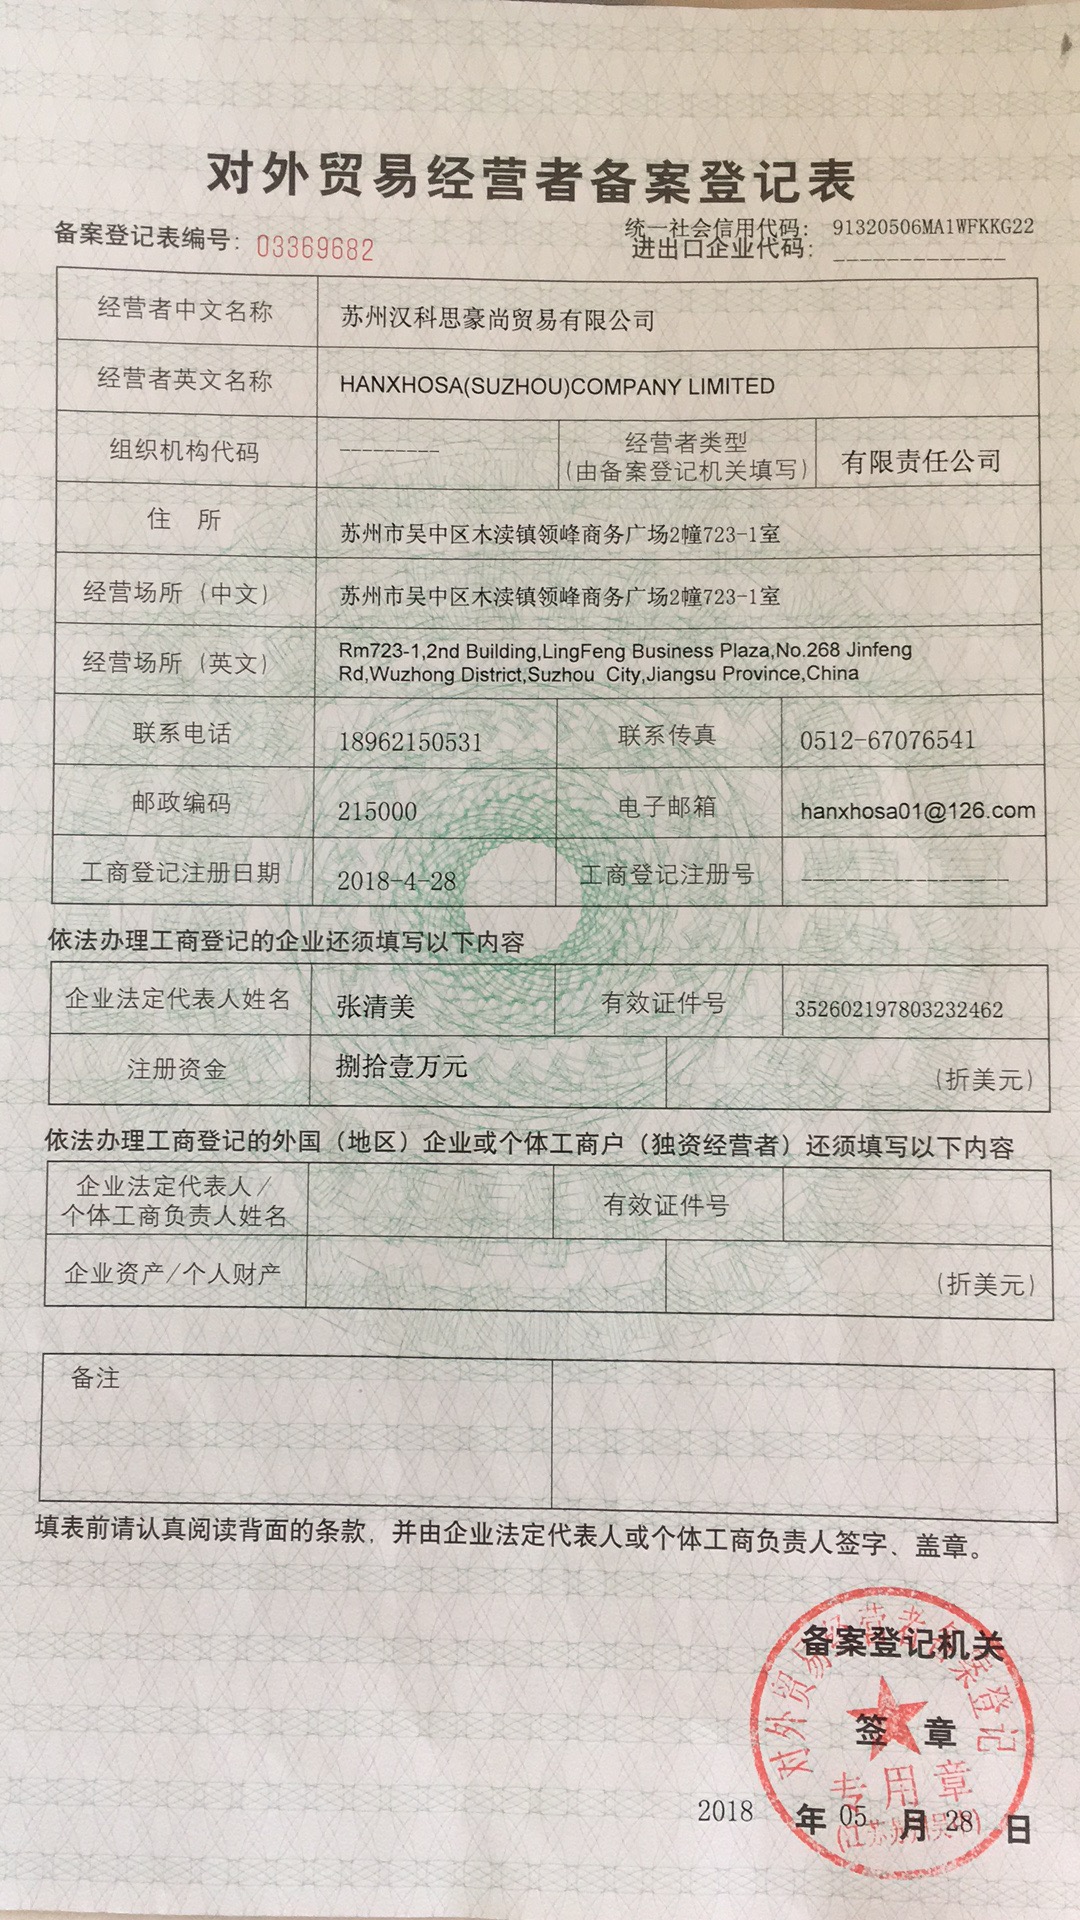 对外贸易经营者备案登记表
备案登记表编号: 03369682
统一社会信用代码: 91320506MA1WFKKG22
进出口企业代码: _____________
经营者中文名称 苏州汉科思豪尚贸易有限公司
经营者英文名称 HANXHOSA(SUZHOU)COMPANY LIMITED
组织机构代码 --------- 经营者类型 (由备案登记机关填写) 有限责任公司
住 所 苏州市吴中区木渎镇领峰商务广场2幢723-1室
经营场所（中文） 苏州市吴中区木渎镇领峰商务广场2幢723-1室
经营场所（英文） Rm723-1,2nd Building,LingFeng Business Plaza,No.268 Jinfeng
Rd,Wuzhong District,Suzhou City,Jiangsu Province,China
联系电话 18962150531 联系传真 0512-67076541
邮政编码 215000 电子邮箱 hanxhosa01@126.com
工商登记注册日期 2018-4-28 工商登记注册号 ---------------
依法办理工商登记的企业还须填写以下内容
企业法定代表人姓名 张清美 有效证件号 352602197803232462
注册资金 捌拾壹万元 (折美元)
依法办理工商登记的外国（地区）企业或个体工商户（独资经营者）还须填写以下内容
企业法定代表人/
个体工商负责人姓名 有效证件号
企业资产/个人财产 (折美元)
备注
填表前请认真阅读背面的条款，并由企业法定代表人或个体工商负责人签字、盖章。
备案登记机关
签 章
对外贸易经营者备案登记
专用章
(江苏苏州吴中)
2018 年 05 月 28 日